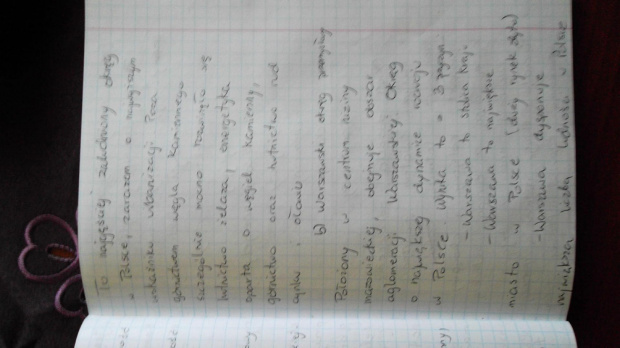 To najgęściej zaludniony okręg
w Polsce, zarazem o najwyższym
wskaźniku urbanizacji. Poza
górnictwem węgla kamiennego
szczególnie mocno rozwinęło się
hutnictwo żelaza, energetyka
oparta o węgiel kamienny,
górnictwo oraz hutnictwo rud
cynku i ołowiu
b) Warszawski okręg przemysłowy
Położony w centrum niziny
mazowieckiej, obejmuje obszar
aglomeracji Warszawskiej. Okręg
o największej dynamice rozwoju
w Polsce wynika to z 3 przyczyn
- Warszawa to stolica kraju
- Warszawa to największe
miasto w Polsce (duży rynek zbytu)
- Warszawa dysponuje
największą liczbą ludności w Polsce